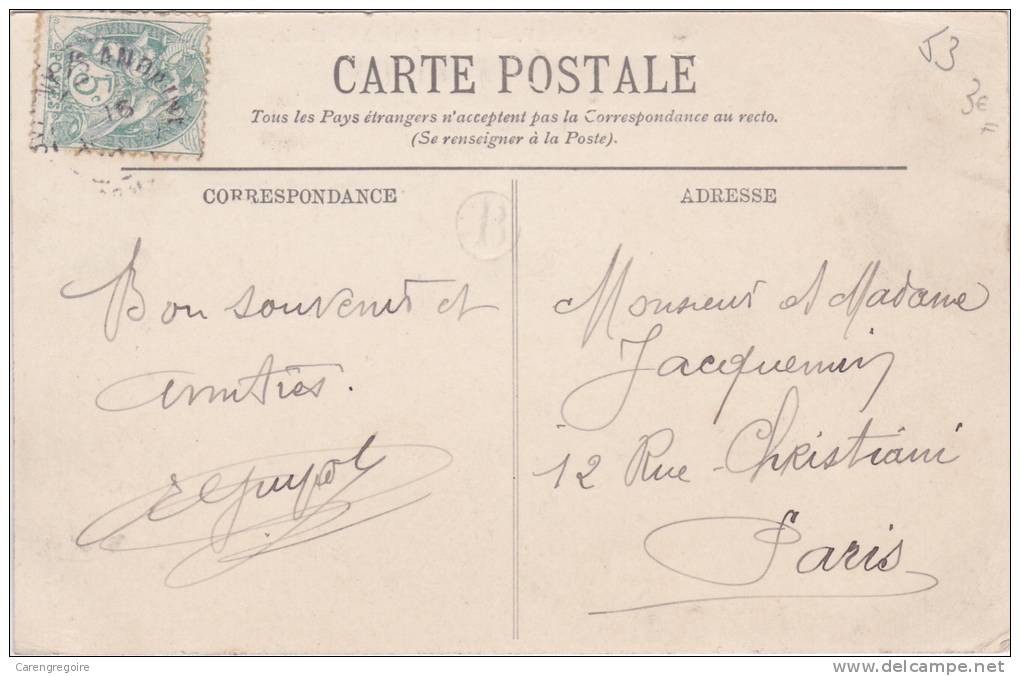 53
3€
CARTE POSTALE
Tous les Pays étrangers n'acceptent pas la Correspondance au recto.
(Se renseigner à la Poste).
CORRESPONDANCE
B
Bon souvenir et
amitiés.
ADRESSE
Monsieur et Madame
Jacquemin
12 Rue Christiani
Paris
Carengregoire
www.delcampe.net